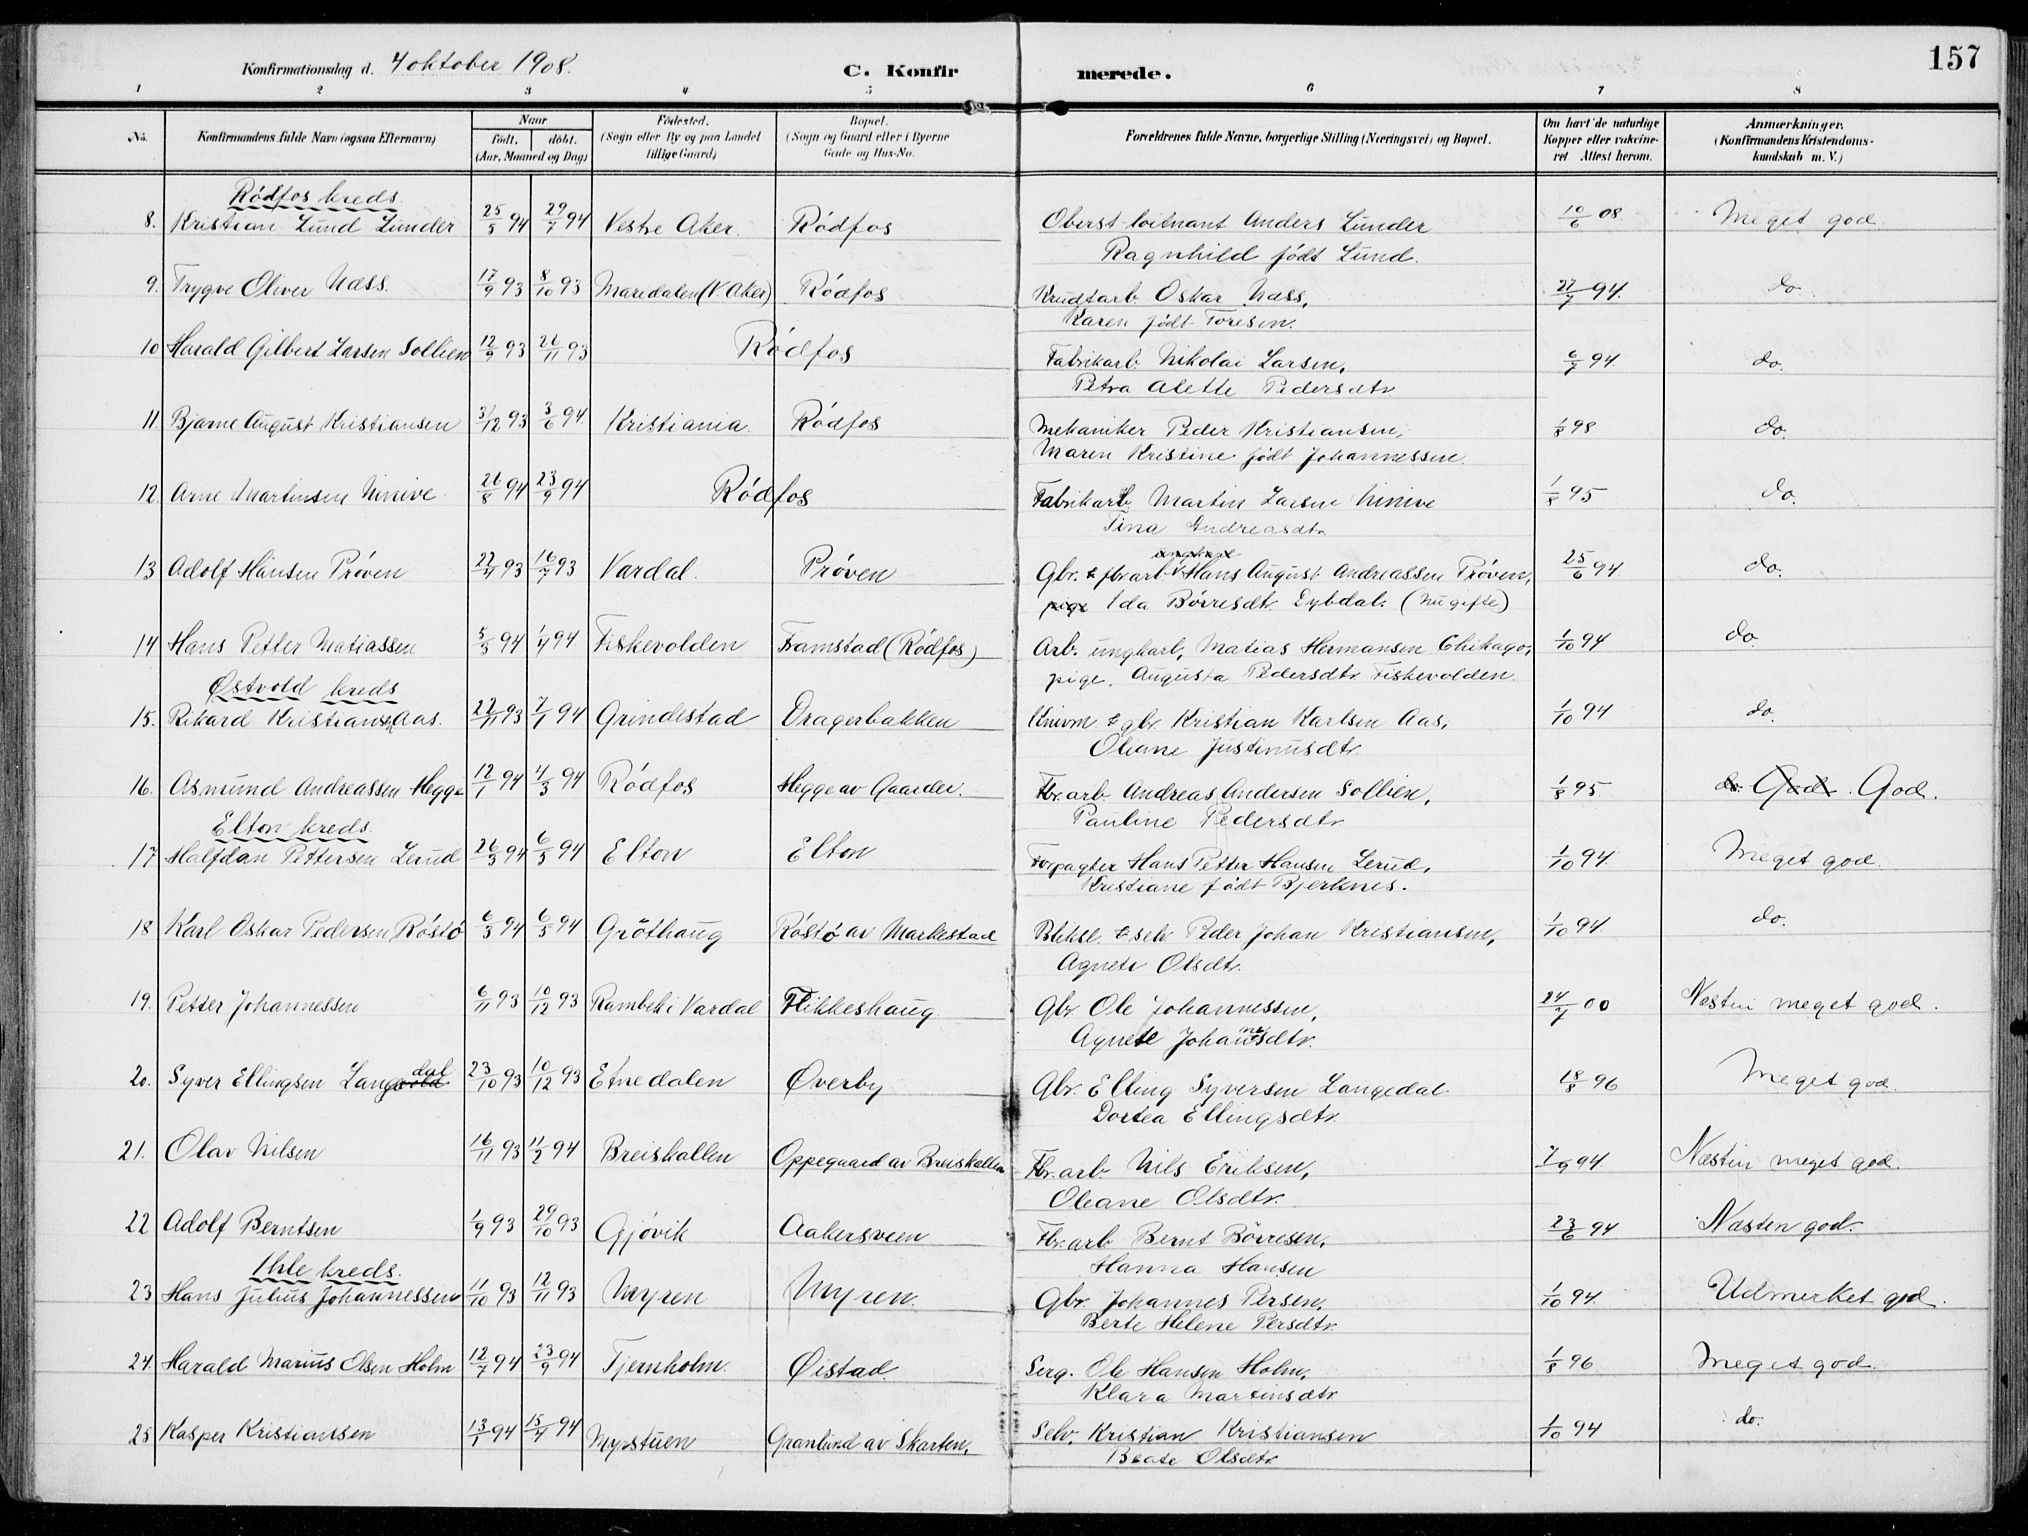 157
Konfirmationsdag d. 4 oktober 1908.
C. Konfirmerede.
1 2 3 4 5 6 7 8
No. Konfirmandens fulde Navn (ogsaa Efternavn) Naar født. døbt. (Aar, Maaned og Dag) Fødested. (Sogn eller By og paa Landet tillige Gaard) Bopæl. (Sogn og Gaard eller i Byerne Gade og Hus-No. Forældrenes fulde Navne, borgerlige Stilling (Næringsvei) og Bopæl. Om havt de naturlige Kopper eller vakcineret Attest herom. Anmærkninger. (Konfirmandens Kristendomskundskab m. V.)
Rødfos kreds.
8. Kristian Lund Lunder 25/5 94 29/7 94 Vestre Aker. Rødfos Oberst-løitnant Anders Lunder 10/6 08. Meget god.
Ragnhild født Lund.
9. Trygve Oliver Næss. 17/9 93 8/10 93 Maridalen (V. Aker) Rødfos Krudtarb. Oskar Næss, 27/7 94. do.
Karen født Toresen.
10 Harald Gilbert Larsen Sollien 12/9 93 26/11 93 Rødfos Fabrikarb. Nikolai Larsen, 6/7 94. do.
Petra Alette Pedersdtr.
11. Bjarne August Kristiansen 31/12 93 3/6 94. Kristiania. Rødfos Mekaniker Peder Kristiansen, 1/8 98 do.
Maren Kristine født Johannessen.
12. Arne Martinsen Ninive 26/8 94 23/9 94 Rødfos Fabrikarb. Martin Larsen Ninive 1/8 95 do.
Tina Andreasdtr.
13 Adolf Hansen Prøven 22/4 93 16/7 93 Vardal. Prøven Gbr. & fbr arb. ungkarl Hans August Andreassen Prøven, 25/6 94. do.
pige Ida Børresdtr. Dybdal. (nu gifte)
14 Hans Petter Matiassen 5/3 94 1/4 94. Fiskevolden Framstad (Rødfos) Arb. ungkarl, Matias Hermansen Chikago, 1/10 94 do.
pige. Augusta Pedersdtr. Fiskevolden.
Østvold kreds
15. Rikard Kristians. Aas. 22/11 93 7/1 94 Grindestad Dragerbakken Knivm. & gbr. Kristian Karlsen Aas, 1/10 94 do.
Oleane Justinusdtr.
16. Asmund Andreassen Hegge 12/1 94 4/3 94 Rødfos Hegge av Gaarder. Fbr. arb. Andreas Andersen Sollien, 1/8 95. do. God. God.
Pauline Pedersdtr.
Elton kreds.
17 Halfdan Pettersen Lerud 26/3 94 6/5 94 Elton Elton Forpagter Hans Petter Hansen Lerud, 1/10 94. Meget god.
Kristiane født Bjerknes.
18 Karl Oskar Pedersen Røstø 6/3 94 6/5 94 Grøthaug Røstø av Markestad Bliksl. & selv. Peder Johan Kristiansen, 1/10 94 do.
Agnete Olsdtr.
19. Petter Johannessen 6/11 93 10/12 93 Rambek i Vardal Flikkeshaug Gbr Ole Johannessen, 24/7 00 Næsten meget god.
Agnete Johannesdtr.
20. Syver Ellingsen Langevold dal 23/10 93 10/12 93 Etnedalen Øverby Gbr. Elling Syversen Langedal 18/8 96 Meget god.
Dortea Ellingsdtr.
21. Olav Nilsen 16/11 93 11/2 94 Breiskallen Oppegaard av Breiskallen Fbr. arb. Nils Eriksen, 7/9 94. Næsten meget god.
Oleane Olsdtr.
22 Adolf Berntsen 1/9 93 29/10 93 Gjøvik Aakersveen Fbr. arb Bernt Børresen, 23/6 94 Næsten god.
Hanna Hansen
Ihle kreds.
23 Hans Julius Johannessen 11/10 93 12/11 93 Myren Myren. Gbr. Johannes Persen, 1/10 94. Udmerket god.
Berte Helene Persdtr.
24. Harald Marius Olsen Holm 12/7 94 23/9 94 Tjernholm. Øistad. Serg. Ole Hansen Holm, 1/8 96 Meget god.
Klara Martinsdtr
25 Kasper Kristianssen 13/1 94 15/4 94 Nystuen Granlund av Skarten, Selv. Kristian Kristiansen 1/10 94 do.
Beate Olsdtr